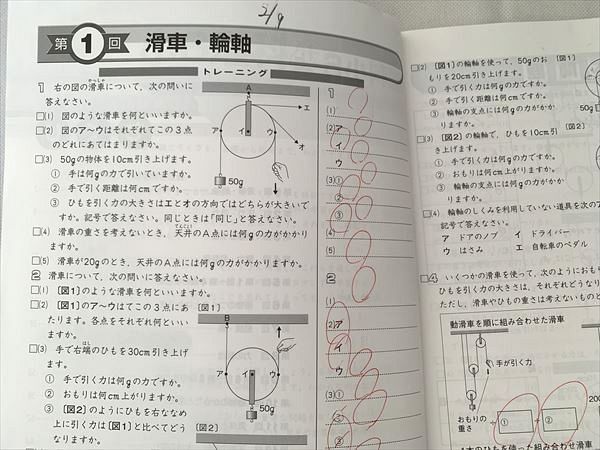 2/9
第1回 滑車・輪軸
トレーニング
1 右の図の滑車について、次の問いに
かっしゃ
答えなさい。
□(1) 図のような滑車を何といいますか。
□(2) 図のア〜ウはそれぞれてこの3点
のどれにあてはまりますか。
□(3) 50gの物体を10cm引き上げます。
① 手は何gの力で引いていますか。
② 手で引く距離は何cmですか。
③ ひもを引く力の大きさはエとオの方向ではどちらが大きいで
すか。記号で答えなさい。同じときは「同じ」と答えなさい。
□(4) 滑車の重さを考えないとき、天井のA点には何gの力がかかり
てんじょう
ますか。
□(5) 滑車が20gのとき、天井のA点には何gの力がかかりますか。
A
エ
ア
イ
ウ
オ
50g
2 滑車について、次の問いに答えなさい。
□(1) 〔図1〕のような滑車を何といいますか。
□(2) 〔図1〕のア〜ウはてこの3点にあ
たります。各点をそれぞれ何とい
いますか。
□(3) 手で右端のひもを30cm引き上げ
はし
ます。
① 手で引く力は何gの力ですか。
② おもりは何cm上がりますか。
③ 〔図2〕のようにひもを右ななめ
上に引く力は〔図1〕と比べてどう
なりますか。
〔図1〕
B
ア
イ
ウ
50g
〔図2〕
1
(1)
(2)ア
イ
ウ
(3)①
②
③
(4)
(5)
2
(1)
(2)ア
イ
ウ
(3)①
②
③
□(2) 〔図1〕の輪軸を使って、50gのお
もりを20cm引き上げます。
① 手で引く力は何gの力ですか。
② 手で引く距離は何cmですか。
③ 輪軸の支点には何gの力がかか
りますか。
□(3) 〔図2〕の輪軸で、ひもを10cm引
き上げます。
① 手で引く力は何gの力ですか。
② おもりは何cm上がりますか。
③ 輪軸の支点には何gの力がかか
りますか。
□(4) 輪軸のしくみを利用していない道具を次のア
記号で答えなさい。
ア ドアのノブ イ ドライバー
ウ はさみ エ 自転車のペダル
4 いくつかの滑車を使って、次のようにおも
ひもを引く力の大きさは、それぞれどうなり
ただし、滑車やひもの重さは考えないものと
動滑車を順に組み合わせた滑車
手が引く力
おもりの
重さ
÷ ① ÷ ②
1本のひもを使った組み合わせ滑車